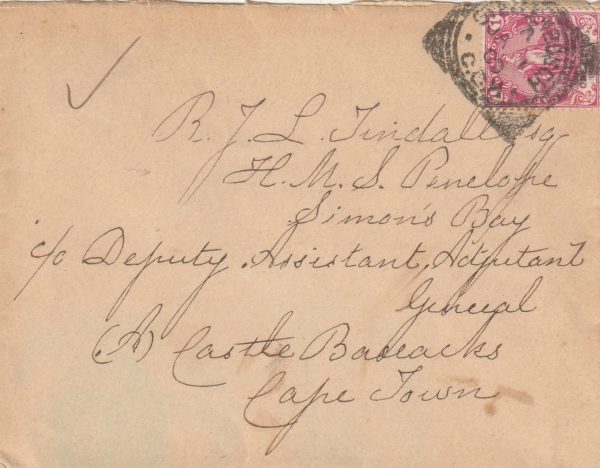 R. J. L. Tindall Esq
H. M. S. Penelope
Simon's Bay
c/o Deputy Assistant Adjutant
General
(A) Castle Barracks
Cape Town